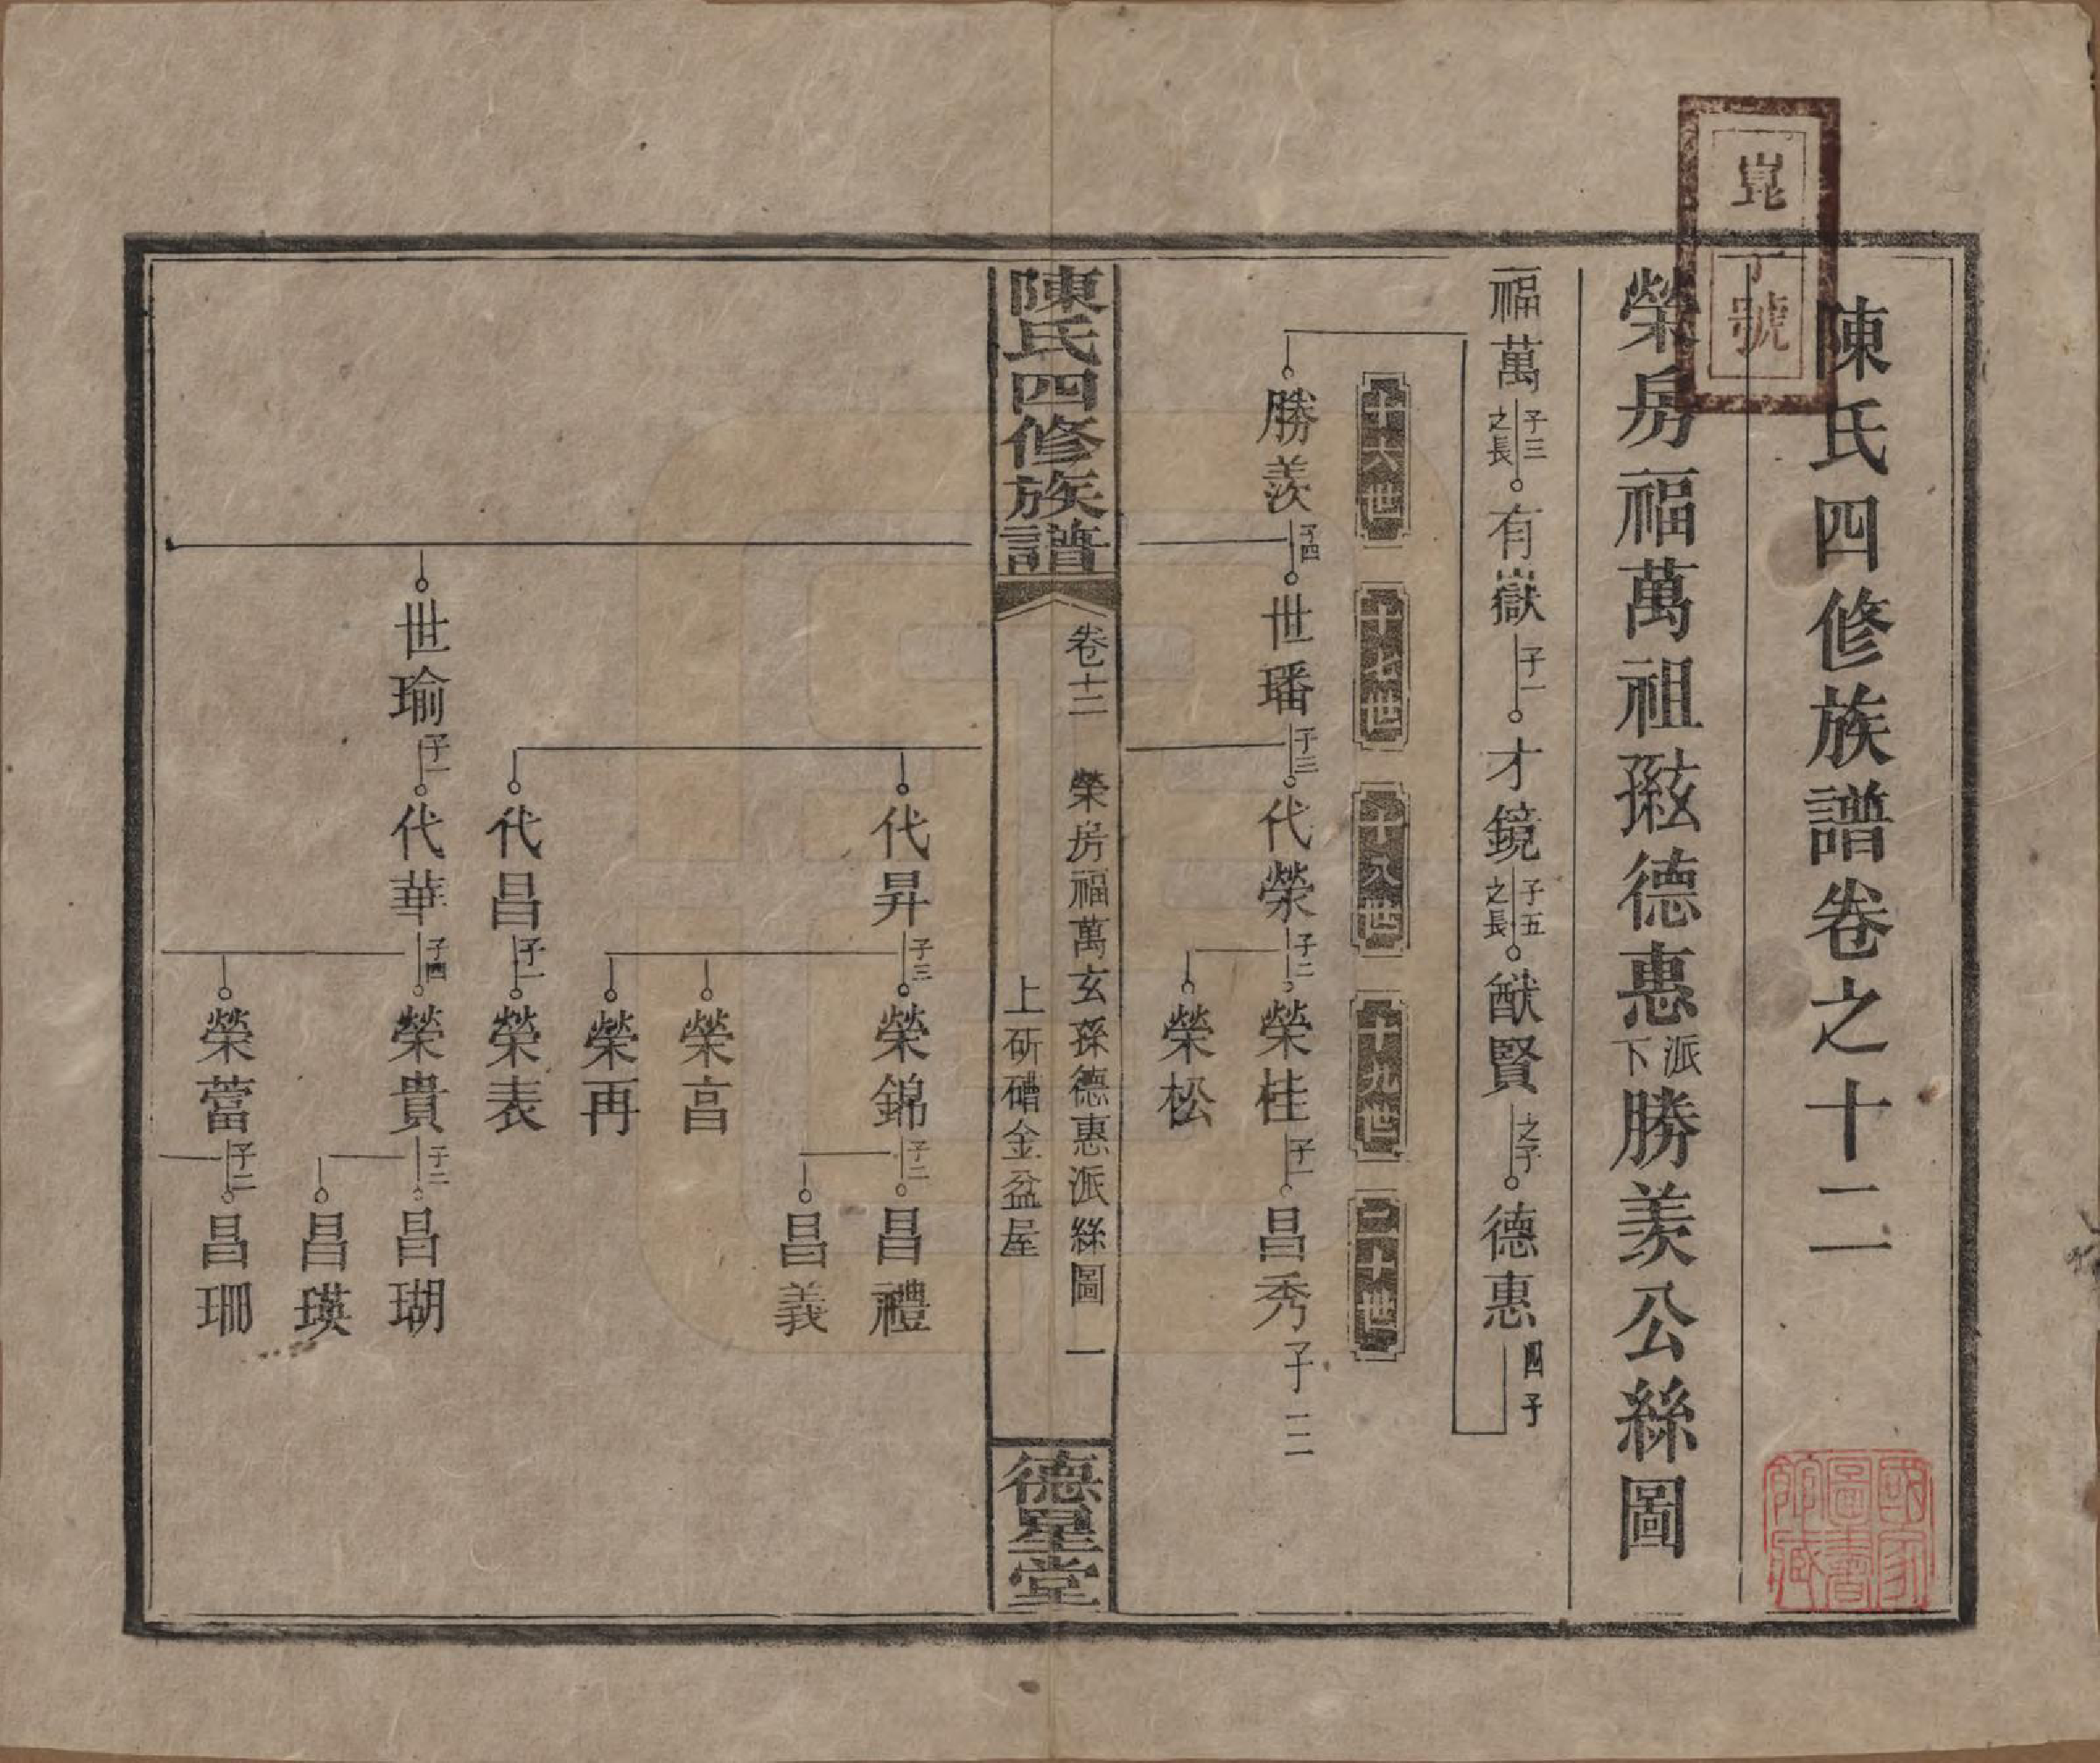 陳氏四修族譜卷之十二
崑丁號
國家圖書館藏
榮房福萬祖玄孫德惠派下勝羨公絲圖
福萬 子三之長 有嶽 子一 才鏡 子五之長 猷賢 之子 德惠 四子
十六世 十七世 十八世 十九世 二十世
勝羨 子四 世璠 子三 代榮 子二 榮桂 子一 昌秀 子二
榮松
陳氏四修族譜
卷十二 榮房福萬玄孫德惠派絲圖 一
上研槽金盆屋
德星堂
代昇 子三 榮錦 子二 昌禮
昌義
榮高
榮再
代昌 子一 榮表
世瑜 子一 代華 子四 榮貴 子二 昌瑚
昌瑛
榮蒿 子二 昌珊